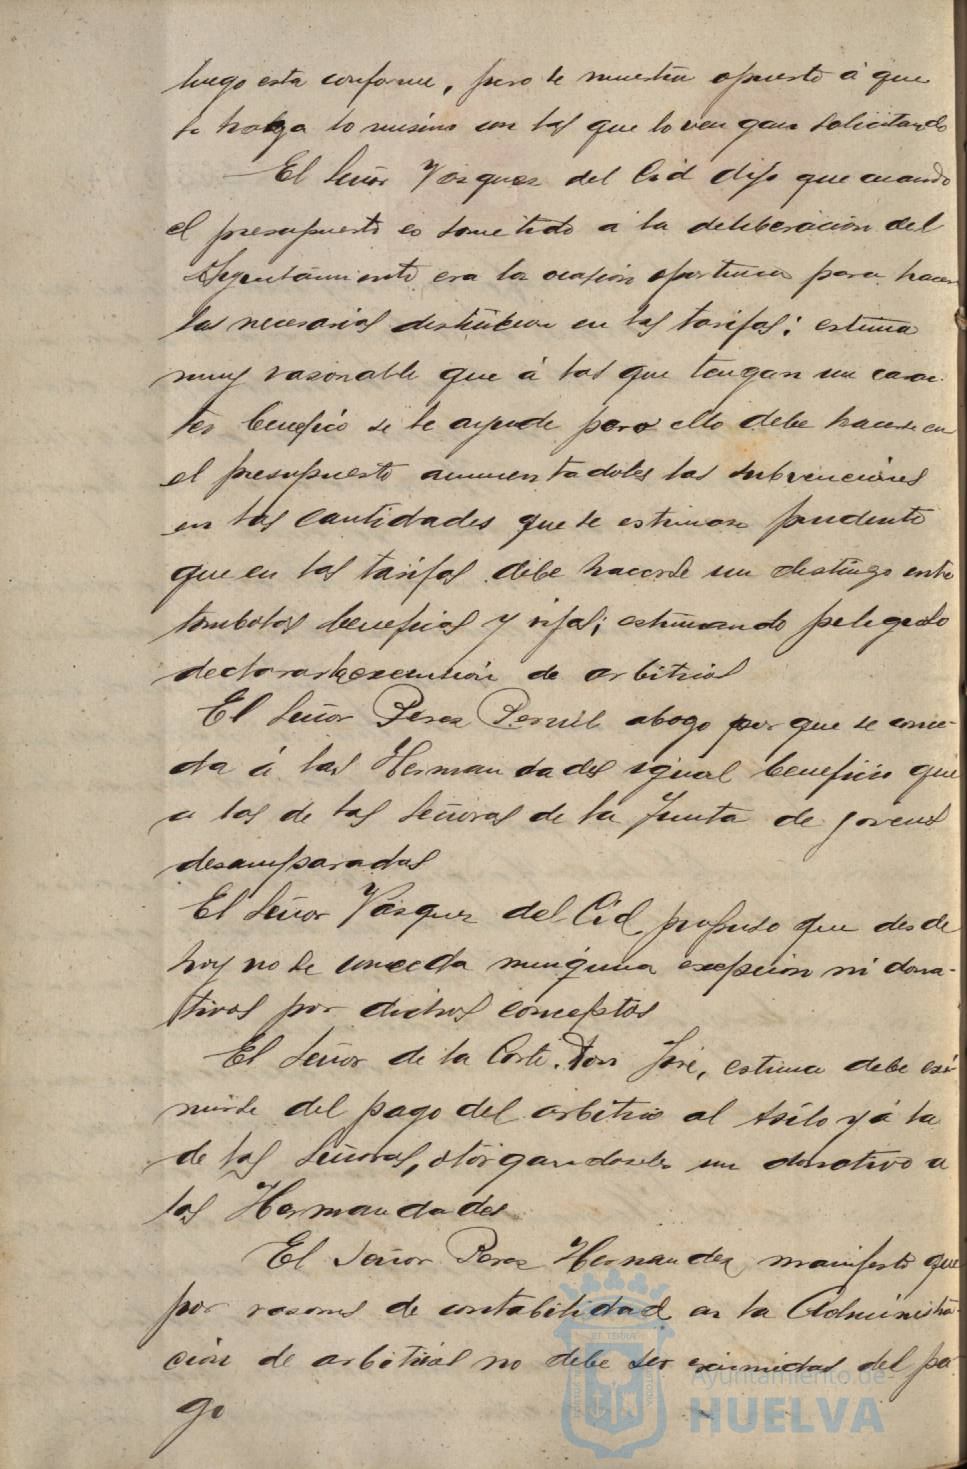 luego esta conforme, pero se muestra opuesto á que
se haga lo mismo con las que lo vengan solicitando
El Señor Vasquez del Cid dijo que cuando
el presupuesto es sometido a la deliberación del
Ayuntamiento era la ocasion oportuna para hacer
las necesarias distincion en las tarifas; estima
muy rasonable que á las que tengan un carac-
ter benefico se le ayude pero ello debe hacerse en
el presupuesto aumentadoles las subvenciones
en las cantidades que se estimase prudente
que en las tarifas debe hacerse un distingo entre
tombolas beneficas y rifas; estimando peligroso
declarar la exencion de arbitrios
El Señor Peres Pernil abogo por que se conce-
da á las Hermandades igual beneficio que
a las de las Señoras de la Junta de jovenes
desamparadas
El Señor Vasquez del Cid propuso que desde
hoy no se conceda ninguna exepcion ni dona-
tivos por dichos conceptos
El Señor de la Corte, Don José, estima debe exi-
mirse del pago del arbitrio al Asilo y á la
de las Señoras, otorgandosele un donativo a
las Hermandades
El Señor Peres Hernandez manifesto que
por rasones de contabilidad en la Administra-
ción de arbitrios no debe ser eximidas del pa-
go
ET TERRA
Ayuntamiento de
HUELVA